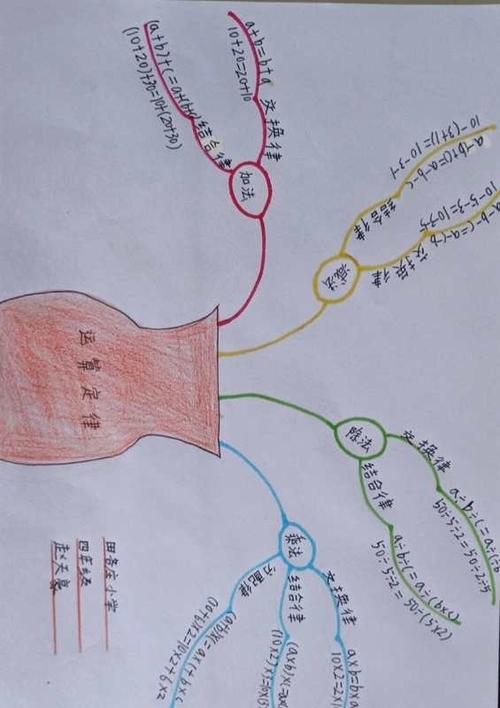 运算定律
加法
交换律
a+b=b+a
10+20=20+10
结合律
(a+b)+c=a+(b+c)
(10+20)+30=10+(20+30)
减法
结合律
10-(3+1)=10-3-1
交换律
10-5-3=10-3-5
除法
交换律
a÷b÷c=a÷c÷b
50÷5÷2=50÷2÷5
结合律
a÷b÷c=a÷(b×c)
50÷5÷2=50÷(5×2)
乘法
交换律
a×b=b×a
10×2=2×1
结合律
(a×b)×c=a×
分配律
(a+b)×c=a×c+b×c
(10+6)×2=10×2+6×2
小学
四年级